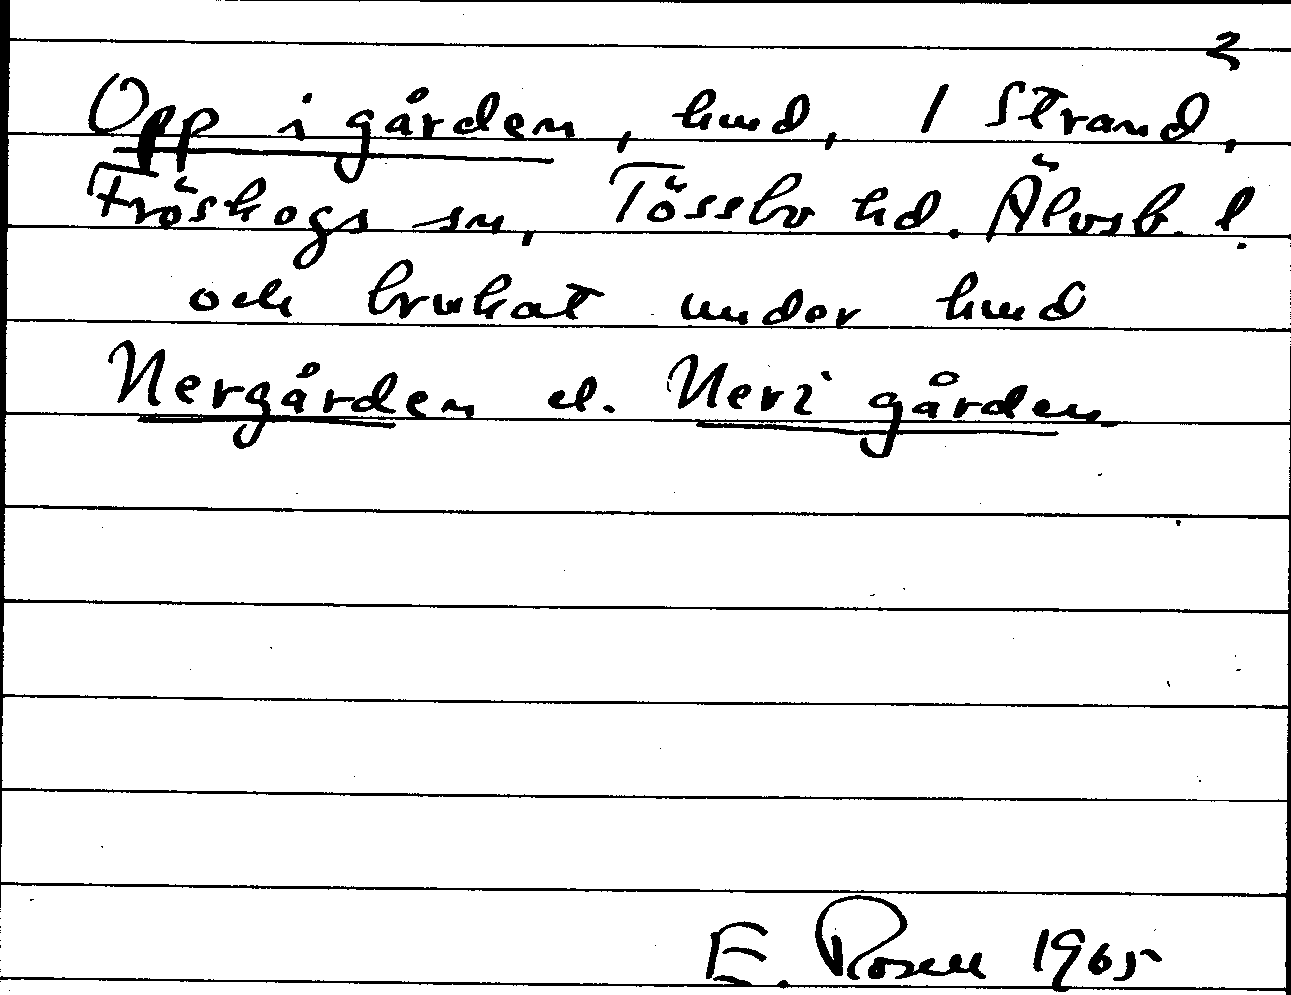 2
Opp i gården, hmd, 1 Strand,
Fröskogs sn, Tössbo hd. Älvsb. l.
och brukat under hmd
Nergården el. Neri gården
E. Rosell 1965